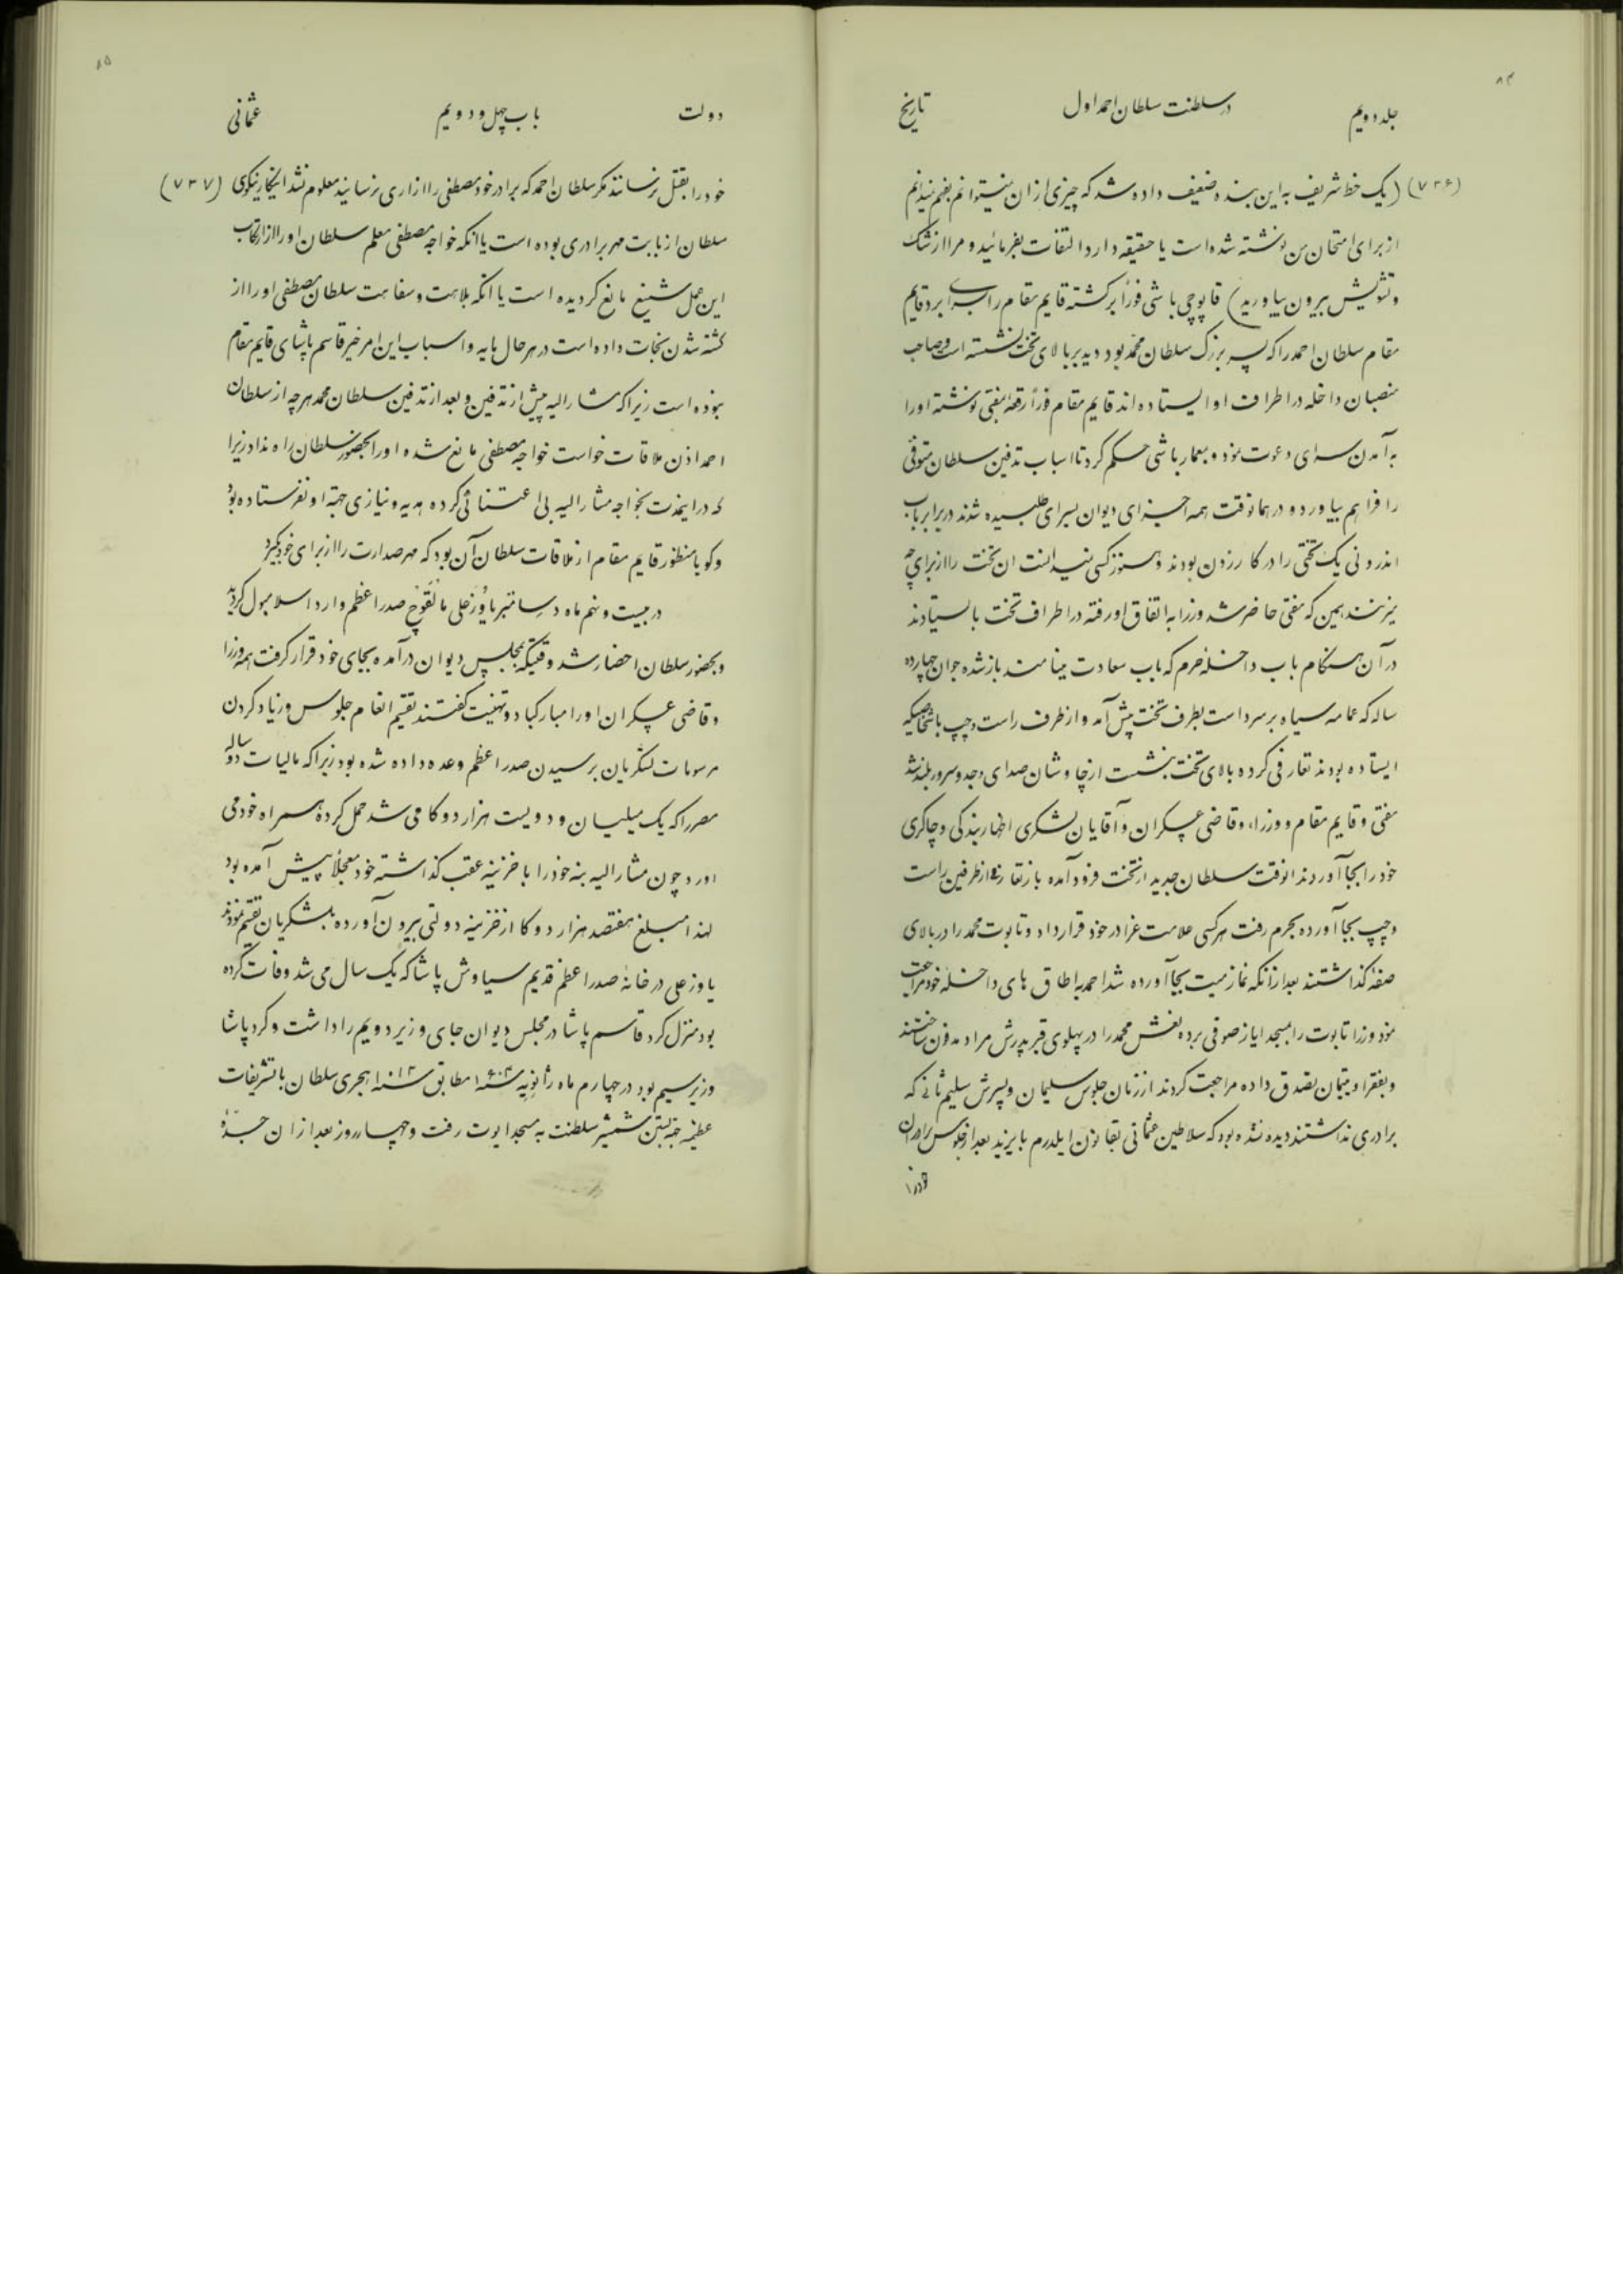 ۸۴
جلد دویم در سلطنت سلطان احمد اول تاریخ
(۷۳۶) (یک خط شریف به این بنده ضعیف داده شد که چیزی از ان نمیتوانم بفهم نمیدانم
از برای امتحان من نوشته شده است یا حقیقه دارد التفات بفرمائید و مرا از شک
و تشویش بیرون بیاورید) قاپوچی باشی فوراً برگشته قایم مقام را بسرای برد قایم
مقام سلطان احمد را که پسر بزرک سلطان محمد بود دید بر بالای تخت نشسته است و صاحب
منصبان داخله در اطراف او ایستاده اند قایم مقام فوراً رقعه بمفتی نوشته او را
به آمدن سرای دعوت نمود و بمعمار باشی حکم کرد تا اسباب تدفین سلطان متوفی
را فراهم بیاورد و در همانوقت همه اجزای دیوان بسرای طلبیده شدند در برابر باب
اندرونی یک تختی را در کار زدن بودند و هنوز کسی نمیدانست ان تخت را از برای چه
میزنند همین که مفتی حاضر شد وزرا به اتفاق او رفته در اطراف تخت بایستادند
در آن هنگام باب داخله حرم که باب سعادت مینامند باز شده جوان چهارده
ساله که عمامه سیاه بر سر داشت بطرف تخت پیش آمد و از طرف راست و چپ باشخاصیکه
ایستاده بودند تعارفی کرده بالای تخت بنشست از چاوشان صدای وجد و سرور بلند شد
مفتی و قایم مقام و وزراء و قاضی عسکران و آقایان لشکری اظهار بندکی و چاکری
خود را بجا آوردند انوقت سلطان جدید از تخت فرود آمده باز تعارفی از طرفین راست
و چپ بجا آورده بحرم رفت هر کسی علامت عزا در خود قرار داد و تابوت محمد را در بالای
صفه گذاشتند بعد از انکه نماز میت بجا آورده شد احمد به اطاق های داخله خود مراجعت
نمود وزرا تابوت را بمسجد ایاز صوفی برده نعش محمد را در پهلوی قبر پدرش مراد مدفون ساختند
و بفقرا و یتیمان تصدق داده مراجعت کردند از زمان جلوس سلیمان و پسرش سلیم ثانی که
برادری نداشتند دیده نشده بود که سلاطین عثمانی بقانون ایلدرم بایزید بعد از جلوس برادران
خود را
۸۵
دولت باب چهل و دویم عثمانی
خود را بقتل نرسانند مکر سلطان احمد که برادر خود مصطفی را ازاری نرسانید معلوم نشد اینکار نیکوی (۷۳۷)
سلطان از بابت مهر برادری بوده است یا انکه خواجه مصطفی معلم سلطان او را از ارتکاب
این عمل شنیع مانع کردیده است یا انکه بلاهت و سفاهت سلطان مصطفی او را از
کشته شدن نجات داده است در هر حال بایه و اسباب این امر خیر قاسم پاشای قایم مقام
نبوده است زیرا که مشار الیه پیش از تدفین و بعد از تدفین سلطان محمد هر چه از سلطان
احمد اذن ملاقات خواست خواجه مصطفی مانع شده او را بحضور سلطان راه نداد زیرا
که در اینمدت بخواجه مشار الیه بی اعتنائی کرده هدیه و نیازی جهته او نفرستاده بود
و کویا منظور قایم مقام از ملاقات سلطان آن بود که مهر صدارت را از برای خود بگیرد
در بیست و نهم ماه دسامبر یاوز علی مالقوج صدر اعظم وارد اسلامبول کردید
و بحضور سلطان احضار شد وقتیکه بمجلس دیوان درآمده بجای خود قرار گرفت همه وزرا
و قاضی عسکران او را مبارکباد و تهنیت کفتند تقسیم انعام جلوس و زیاد کردن
مرسومات لشکریان برسیدن صدر اعظم وعده داده شده بود زیرا که مالیات دو ساله
مصر را که یک میلیان و دویست هزار دوکا می شد حمل کرده همراه خود می
اورد چون مشار الیه بنه خود را با خزینه عقب گذاشته خود معجلاً پیش آمده بود
لهذا مبلغ هفتصد هزار دوکا از خزینه دولتی بیرون آورده بلشکریان تقسیم نمودند
یاوز علی در خانهٔ صدر اعظم قدیم سیاوش پاشا که یک سال می شد وفات کرده
بود منزل کرد قاسم پاشا در مجلس دیوان جای وزیر دویم را داشت و کرد پاشا
وزیر سیم بود در چهارم ماه ژانویه سنه ۱۶۰۴ مطابق سنه ۱۰۱۲ هجری سلطان با تشریفات
عظیمه جهته بستن شمشیر سلطنت به مسجد ایوب رفت و چهار روز بعد از ان جدهٔ